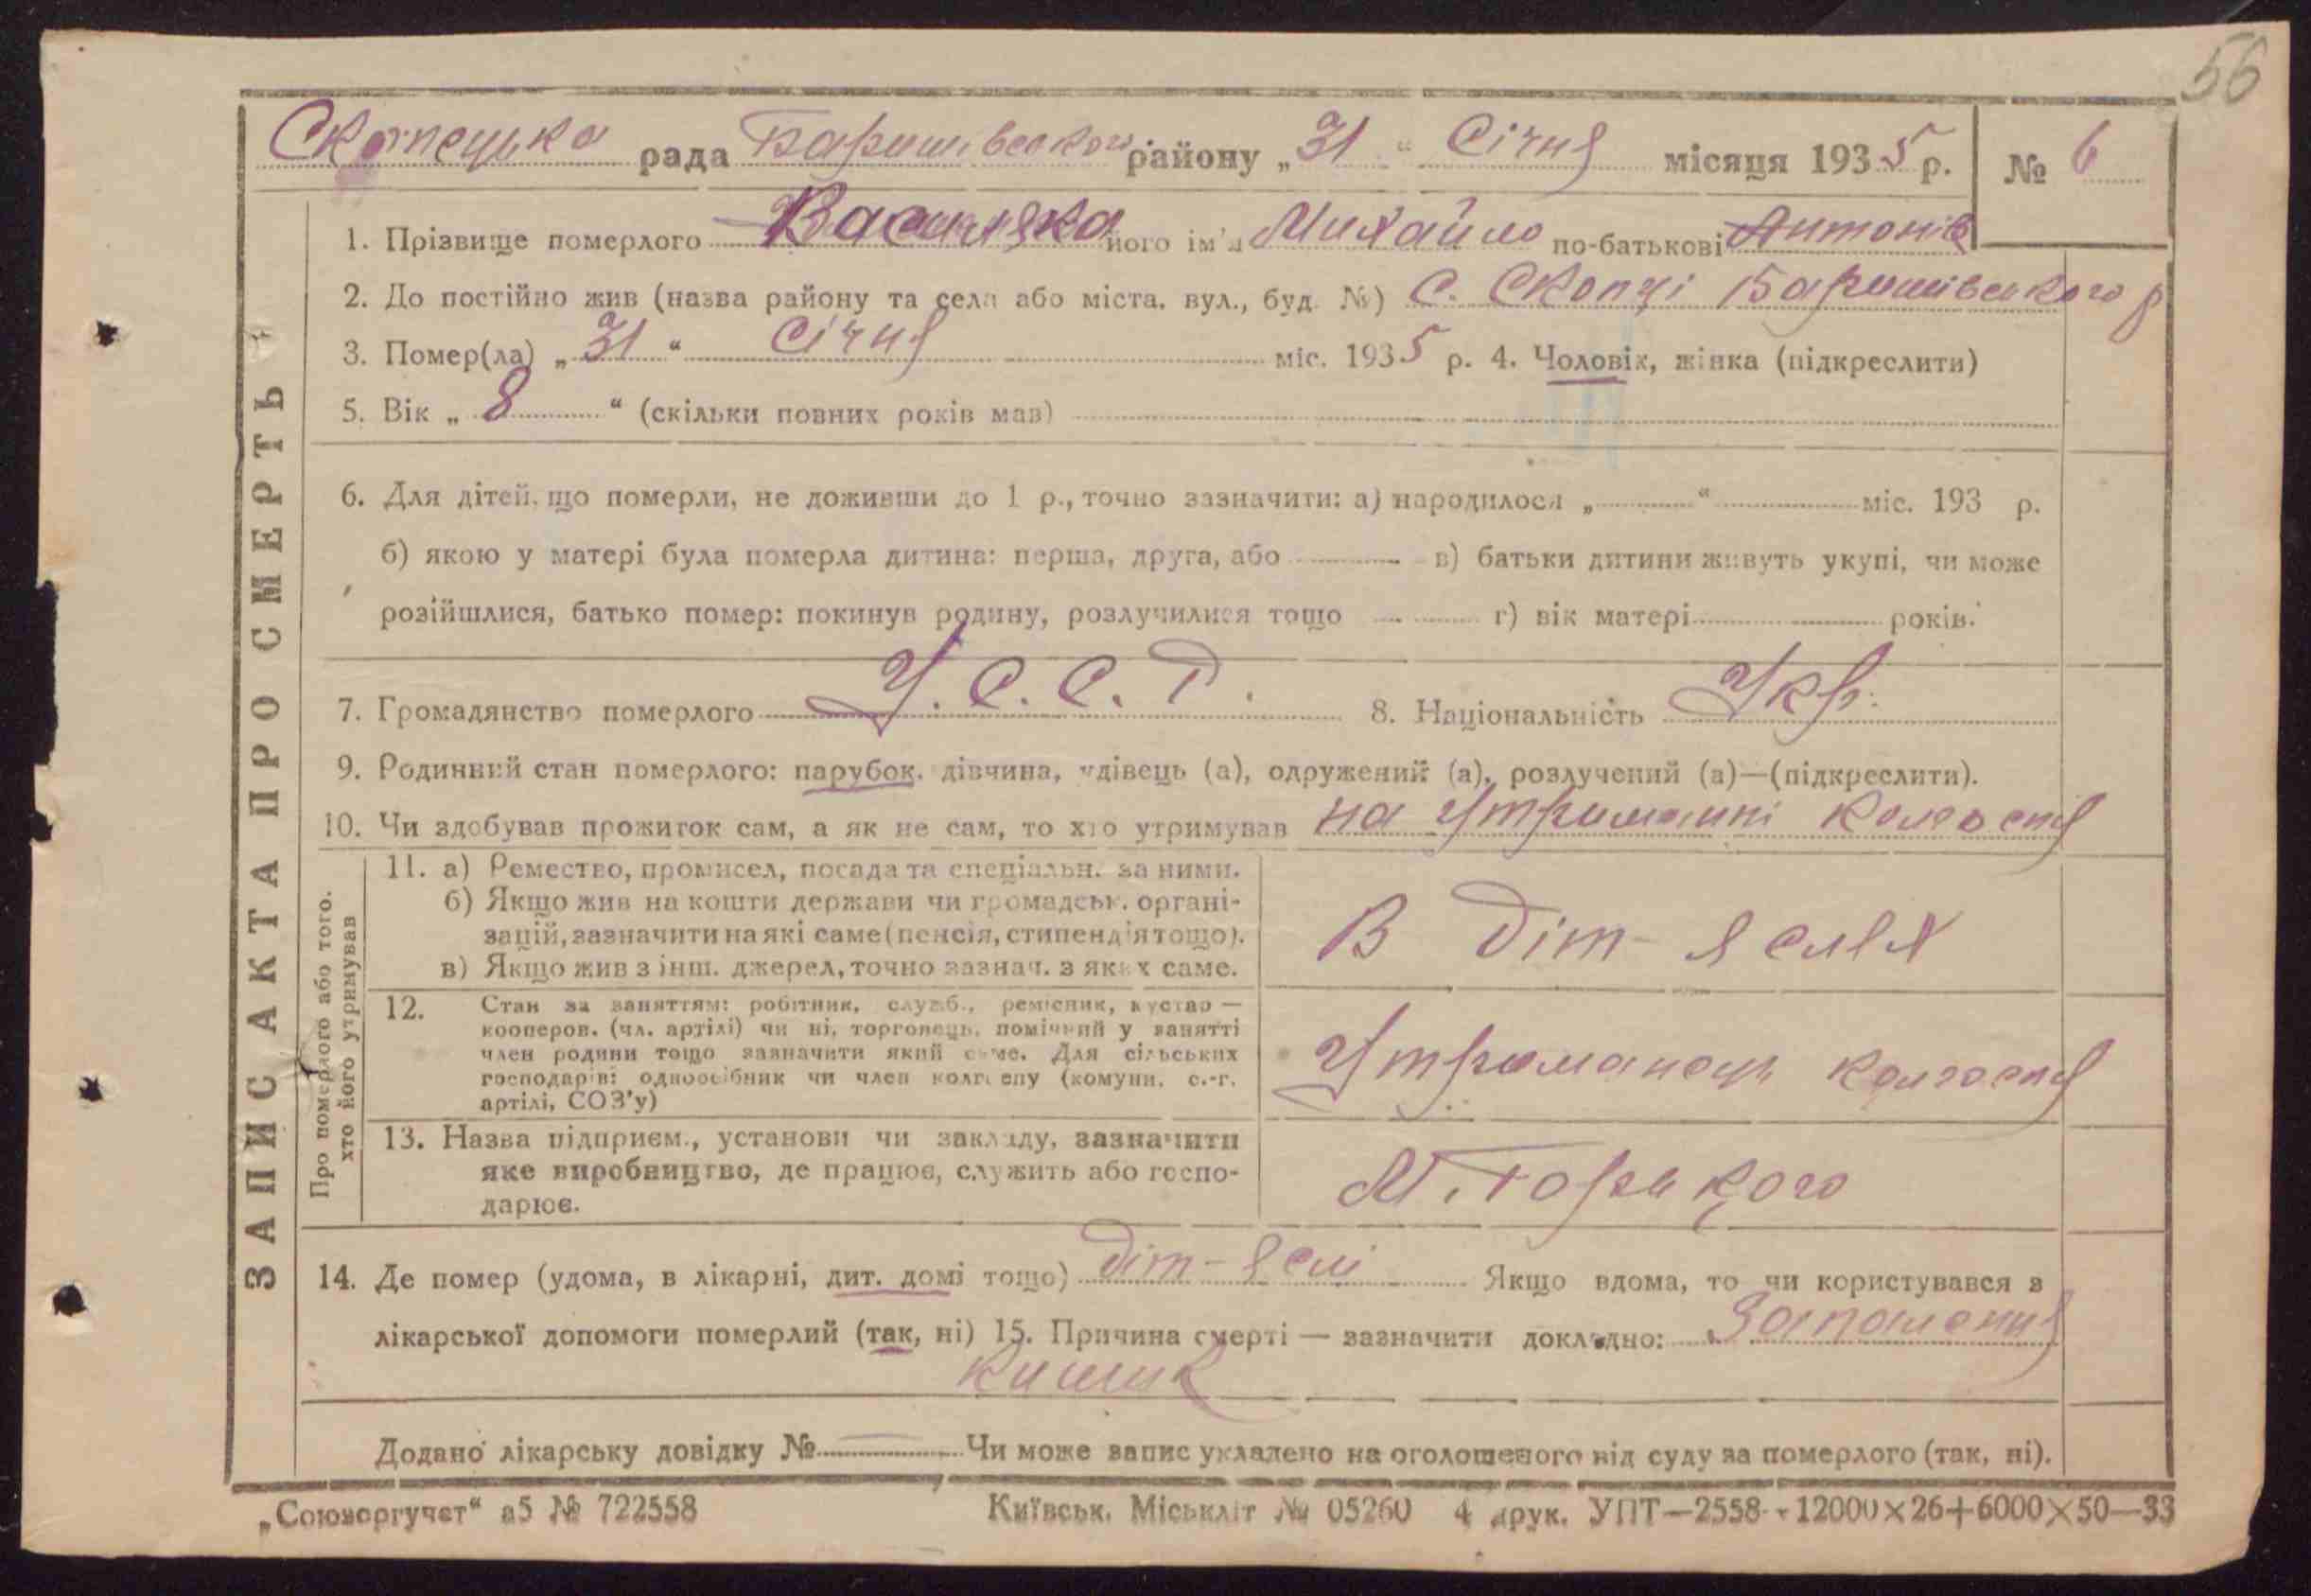 56
Скопецька рада Баришівського району „31“ Січня місяця 1935 р. № 6
1. Прізвище померлого Василяка його ім'я Михайло по-батькові Антонів
2. До постійно жив (назва району та села або міста, вул., буд. №) С. Скопці Баришівського р
3. Помер(ла) „31“ Січня міс. 1935 р. 4. Чоловік, жінка (підкреслити)
5. Вік „8“ (скільки повних років мав)
6. Для дітей, що померли, не доживши до 1 р., точно зазначити: а) народилося „ “ міс. 193 р.
б) якою у матері була померла дитина: перша, друга, або в) батьки дитини живуть укупі, чи може
розійшлися, батько помер: покинув родину, розлучилися тощо г) вік матері років.
7. Громадянство померлого У.С.С.Р. 8. Національність Укр.
9. Родинний стан померлого: парубок, дівчина, удівець (а), одружений (а), розлучений (а)—(підкреслити).
10. Чи здобував прожиток сам, а як не сам, то хто утримував на утриманні колгоспу
11. а) Ремество, промисел, посада та спеціальн. за ними.
б) Якщо жив на кошти держави чи громадськ. органі-
зацій, зазначити на які саме (пенсія, стипендія тощо).
в) Якщо жив з інш. джерел, точно зазнач. з яких саме.
В діт-яслях
12. Стан за заняттям: робітник, служб., ремісник, кустар —
кооперов. (чл. артілі) чи ні, торговець, помічний у занятті
член родини тощо зазначити який саме. Для сільських
господарів: одноосібник чи член колгоспу (комуни, с.-г.
артілі, СОЗ'у)
Утриманець колгоспу
13. Назва підприєм., установи чи закладу, зазначити
яке виробництво, де працює, служить або госпо-
дарює.
М. Горького
14. Де помер (удома, в лікарні, дит. домі тощо) діт-яслі Якщо вдома, то чи користувався з
лікарської допомоги померлий (так, ні) 15. Причина смерті — зазначити докладно: Запалення
кишик
Додано лікарську довідку № Чи може запис укладено на оголошеного від суду за померлого (так, ні).
„Союзоргучет“ а5 № 722558 Київськ. Міськліт № 05260 4 друк. УПТ—2558—12000×26+6000×50—33
ЗАПИС АКТА ПРО СМЕРТЬ
Про померлого або того,
хто його утримував